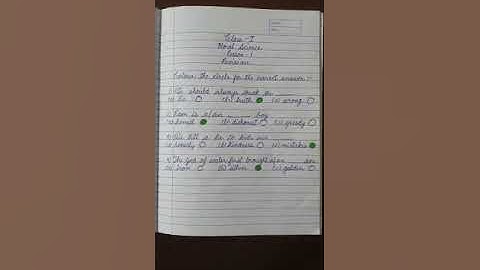 Class-I
Moral Science
Lesson-1
Revision
Colour the circle for the correct answer:-
1) We should always speak the
a) lie (b) truth (c) wrong
2) Ram is a/an boy
a) honest (b) dishonest (c) greedy
3) We tell a lie to hide our
a) honesty (b) kindness (c) mistake
4) The god of water first brought a/an axe
(a) iron (b) silver (c) golden